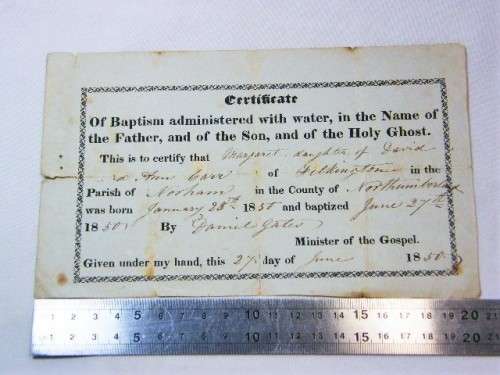 Certificate
Of Baptism administered with water, in the Name of
the Father, and of the Son, and of the Holy Ghost.
This is to certify that Margaret daughter of David
& Ann Cave of Felkington in the
Parish of Norham in the County of Northumberland
was born January 28th 1850 and baptized June 27th
1850 By Daniel Gates
Minister of the Gospel.
Given under my hand, this 27 day of June 1850
1 2 3 4 5 6 7 8 9 10 11 12 13 14 15 16 17 18 19 20